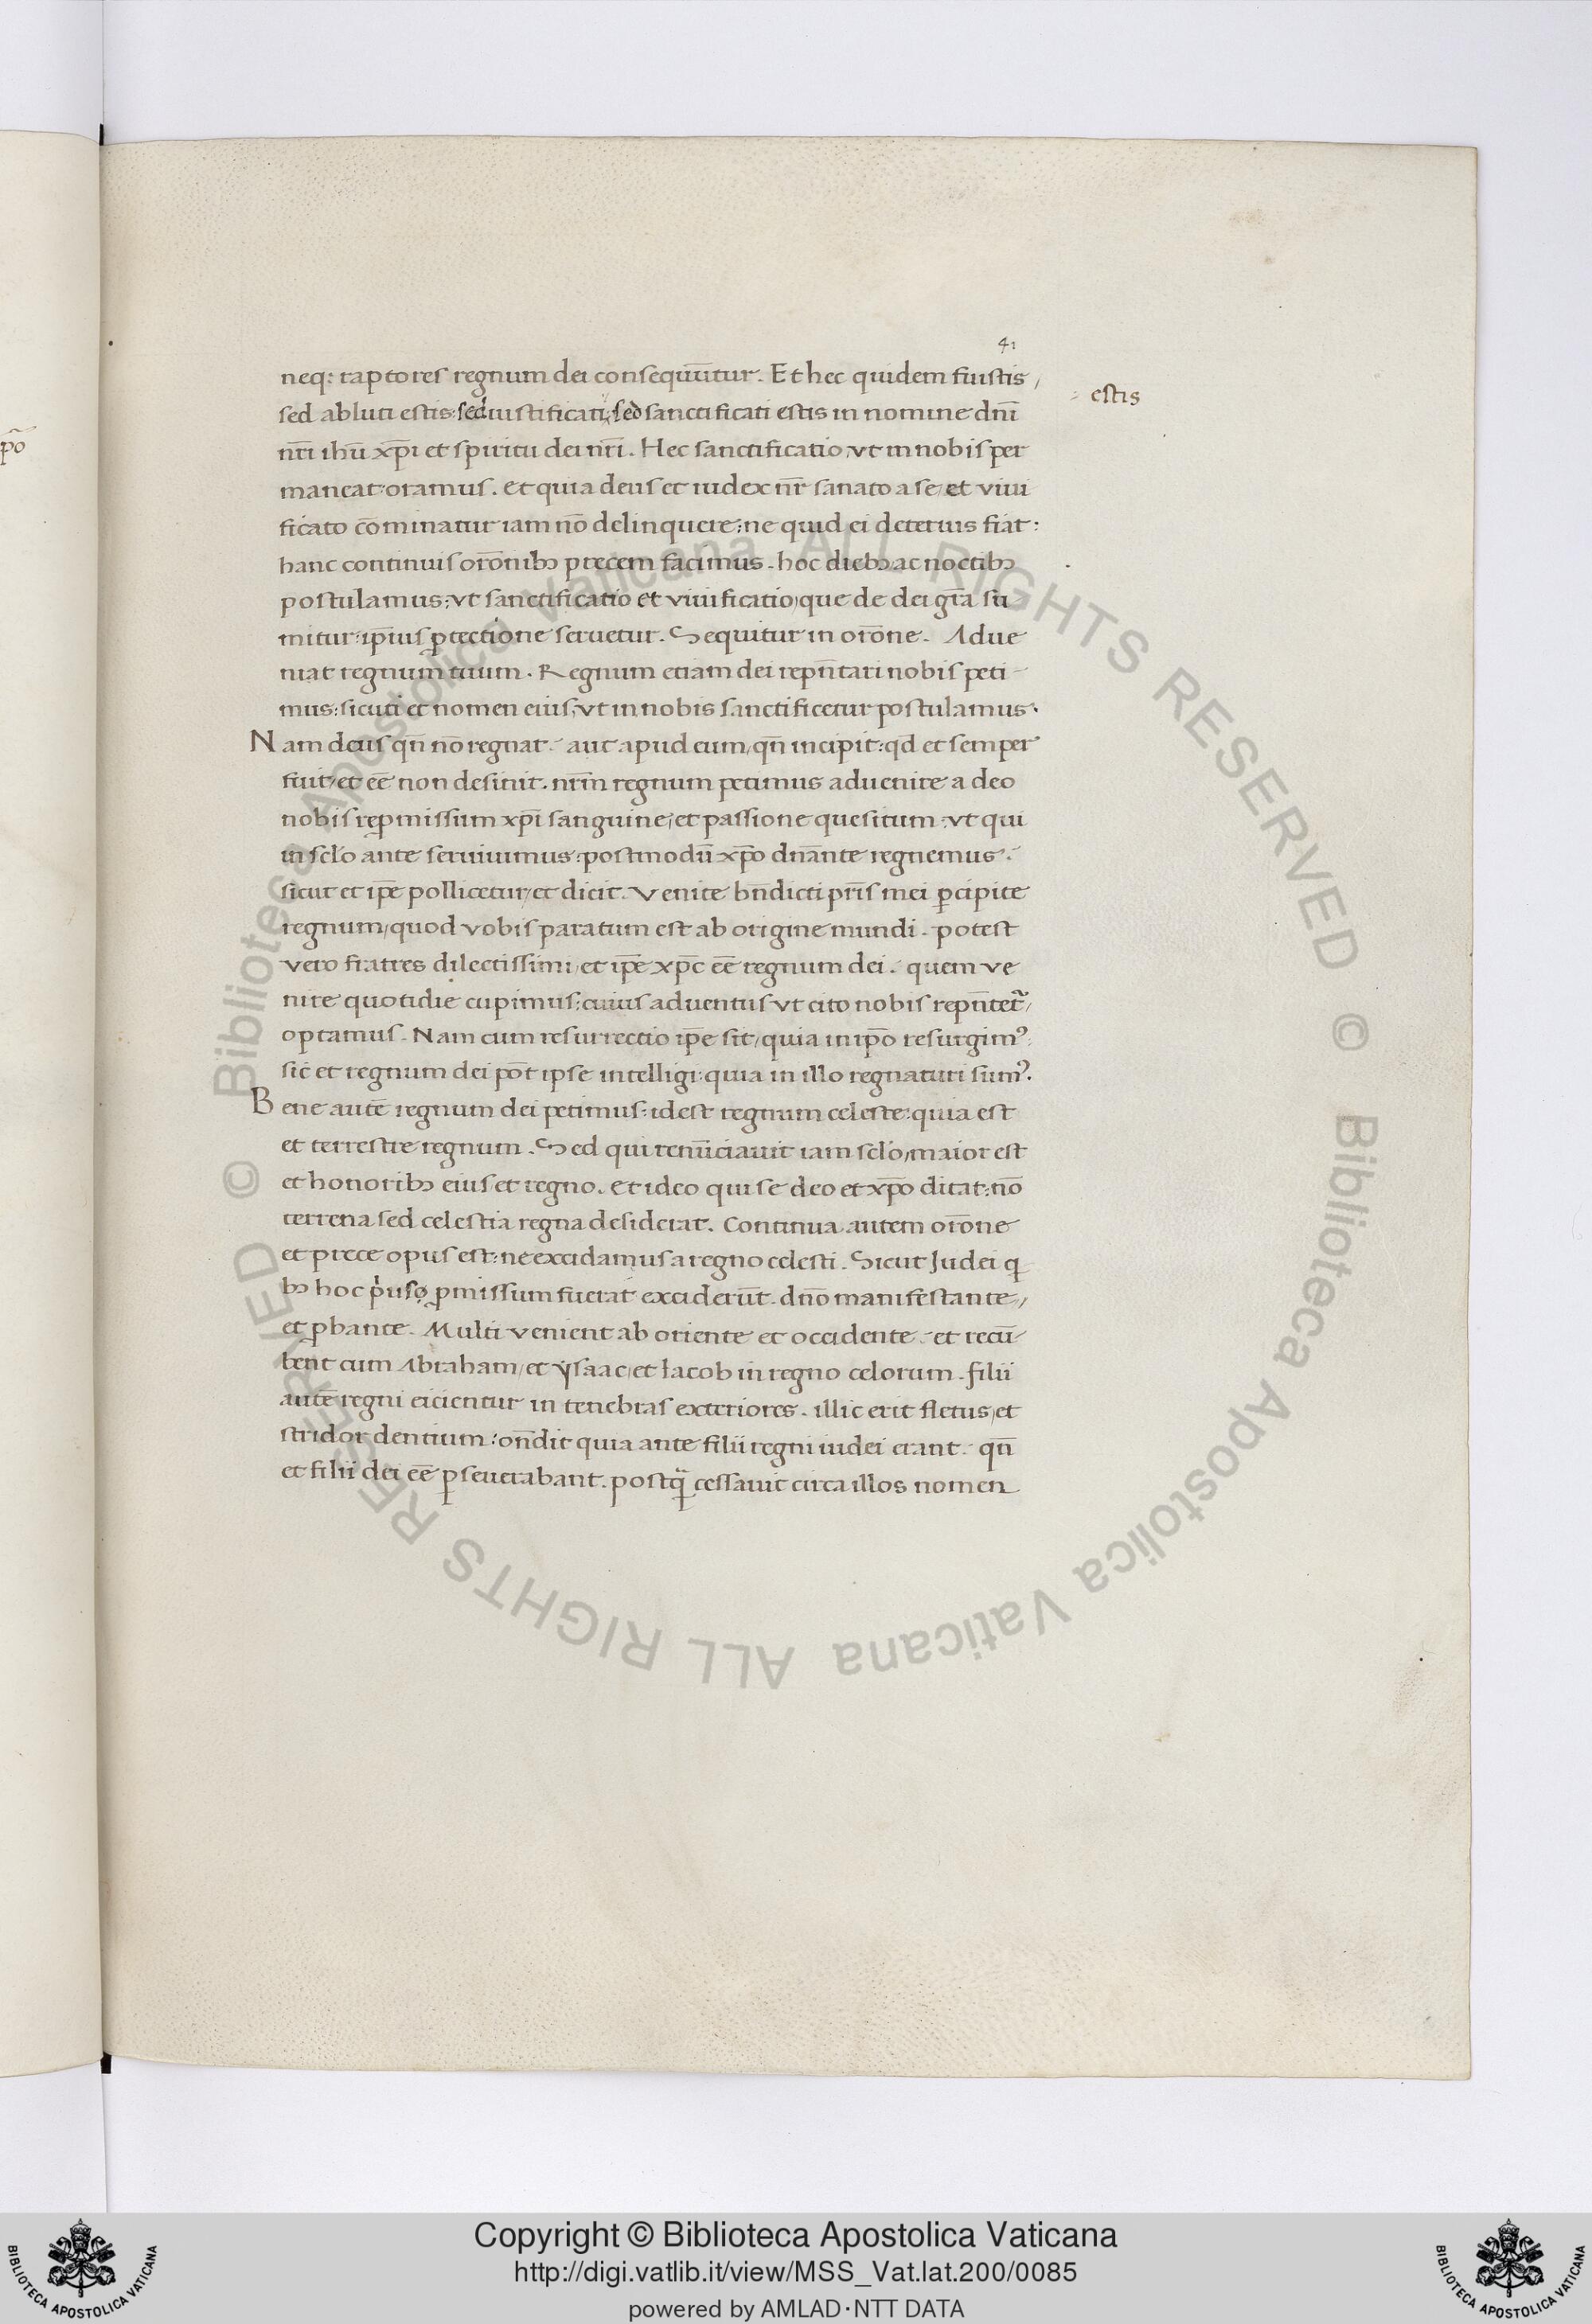 41
neq: raptores regnum dei consequūtur. Et hec quidem fuistis,
estis
sed abluti estis: sed iustificati, sed sanctificati estis in nomine dnī
nrī ihū xp̄i et spiritu dei nrī. Hec sanctificatio, vt in nobis per
maneat: oramus. et quia deus et iudex nr̄ sanato a se, et viui
ficato cōminatur iam nō delinquere: ne quid ei deterius fiat:
hanc continuis orōnibꝫ precem facimus. hoc diebꝫ ac noctibꝫ
postulamus: vt sanctificatio et viuificatio, que de dei gr̄a su
mitur: ip̄ius ꝓtectione seruetur. Sequitur in orōne. Adue
niat regnum tuum. Regnum etiam dei repn̄tari nobis peti-
mus: sicuti et nomen eius, vt in nobis sanctificetur postulamus.
Nam deus qn̄ nō regnat. aut apud eum, qn̄ incipit: qd̄ et semper
fuit, et eē non desinit. nrm̄ regnum petimus aduenire a deo
nobis repmissum xp̄i sanguine, et passione quesitum: vt qui
in sclo ante seruiuimus: postmodū xp̄o dn̄ante regnemus.
sicut et ip̄e pollicetur, et dicit. Venite bn̄dicti pr̄is mei ꝑcipite
regnum, quod vobis paratum est ab origine mundi. potest
vero fratres dilectissimi, et ip̄e xp̄c eē regnum dei. quem ve
nire quotidie cupimus: cuius aduentus vt cito nobis repn̄tet᷑,
optamus. Nam cum resurrectio ip̄e sit, quia in ip̄o resurgimꝰ:
sic̄ et regnum dei pōt ipse intelligi: quia in illo regnaturi sumꝰ.
Bene autē regnum dei petimus: idest regnum celeste: quia est
et terrestre regnum. Sed qui renūciauit iam sclo, maior est
et honoribꝫ eius et regno. Et ideo qui se deo et xp̄o dicat: nō
terrena sed celestia regna desiderat. Continua autem orōne
et prece opus est: ne excidamus a regno celesti. Sicut Judei q
bꝫ hoc pͥus ꝓmissum fuerat exciderūt. dnō manifestante,
et ꝓbante. Multi venient ab oriente et occidente. et recū-
bent cum Abraham, et ysaac, et Iacob in regno celorum. filii
autē regni eicientur in tenebras exteriores. illic erit fletus, et
stridor dentium: on̄dit quia ante filii regni iudei erant. qn̄
et filii dei eē ꝑseuerabant. postq̄ cessauit circa illos nomen
pō
Copyright © Biblioteca Apostolica Vaticana
http://digi.vatlib.it/view/MSS_Vat.lat.200/0085
powered by AMLAD·NTT DATA
BIBLIOTECA APOSTOLICA VATICANA
BIBLIOTECA APOSTOLICA VATICANA
© Biblioteca Apostolica Vaticana ALL RIGHTS RESERVED © Biblioteca Apostolica Vaticana ALL RIGHTS RESERVED